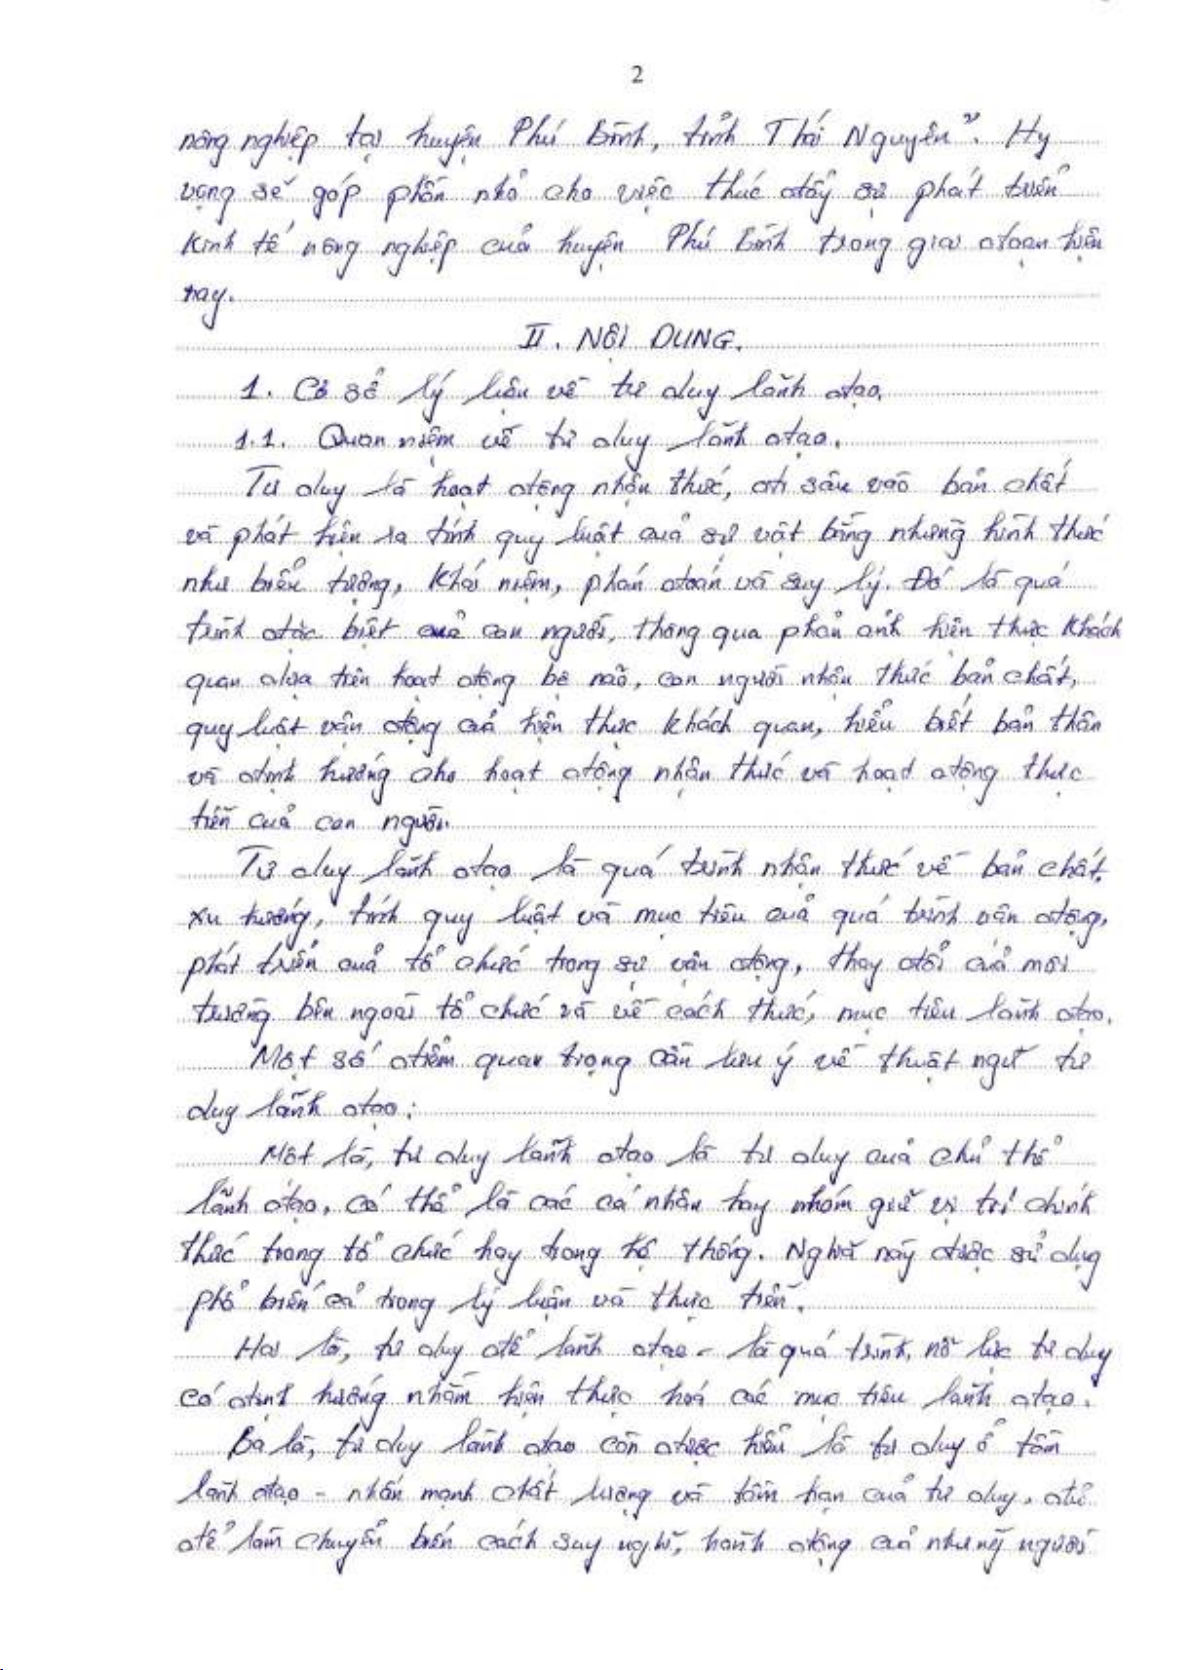 2
nông nghiệp tại huyện Phú Bình, tỉnh Thái Nguyên". Hy
vọng sẽ góp phần nhỏ cho việc thúc đẩy sự phát triển
kinh tế nông nghiệp của huyện Phú Bình trong giai đoạn hiện
nay.
II. NỘI DUNG.
1. Cơ sở lý luận về tư duy lãnh đạo.
1.1. Quan niệm về tư duy lãnh đạo.
Tư duy là hoạt động nhận thức, đi sâu vào bản chất
và phát hiện ra tính quy luật của sự vật bằng những hình thức
như biểu tượng, khái niệm, phán đoán và suy lý. Đó là quá
trình đặc biệt của con người, thông qua phản ánh hiện thực khách
quan dựa trên hoạt động bộ não, con người nhận thức bản chất,
quy luật vận động của hiện thực khách quan, hiểu biết bản thân
và định hướng cho hoạt động nhận thức và hoạt động thực
tiễn của con người.
Tư duy lãnh đạo là quá trình nhận thức về bản chất,
xu hướng, tính quy luật và mục tiêu của quá trình vận động,
phát triển của tổ chức trong sự vận động, thay đổi của môi
trường bên ngoài tổ chức và về cách thức, mục tiêu lãnh đạo.
Một số điểm quan trọng cần lưu ý về thuật ngữ tư
duy lãnh đạo:
Một là, tư duy lãnh đạo là tư duy của chủ thể
lãnh đạo, có thể là các cá nhân hay nhóm giữ vị trí chính
thức trong tổ chức hay trong hệ thống. Nghĩa này được sử dụng
phổ biến cả trong lý luận và thực tiễn.
Hai là, tư duy để lãnh đạo - là quá trình, nỗ lực tư duy
có định hướng nhằm hiện thực hoá các mục tiêu lãnh đạo.
Ba là, tư duy lãnh đạo còn được hiểu là tư duy ở tầm
lãnh đạo - nhấn mạnh chất lượng và tầm hạn của tư duy, đủ
để làm chuyển biến cách suy nghĩ, hành động của những người